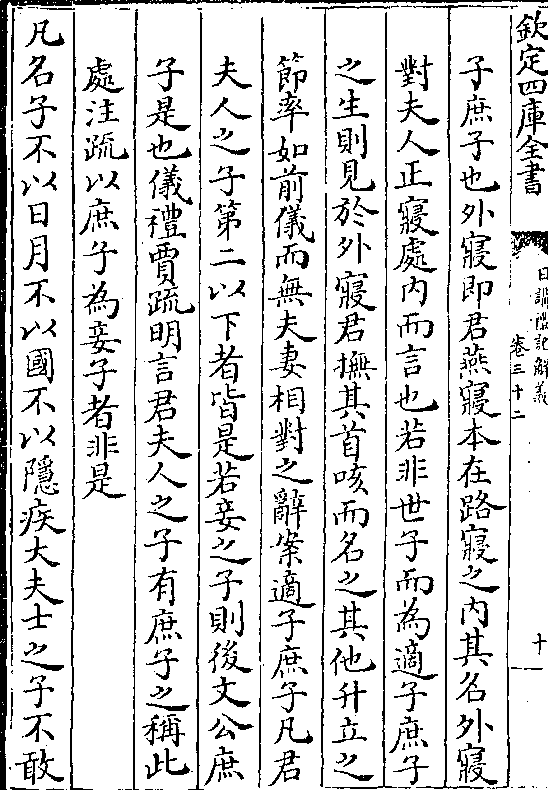 欽定四庫全書
日講禮記解義
卷三十二
十
子庶子也外寢即君燕寢本在路寢之內其名外寢
對夫人正寢處內而言也若非世子而為適子庶子
之生則見於外寢君撫其首咳而名之其他升立之
節率如前儀而無夫妻相對之辭案適子庶子凡君
夫人之子第二以下者皆是若妾之子則後文公庶
子是也儀禮賈疏明言君夫人之子有庶子之稱此
處注疏以庶子為妾子者非是
凡名子不以日月不以國不以隱疾大夫士之子不敢